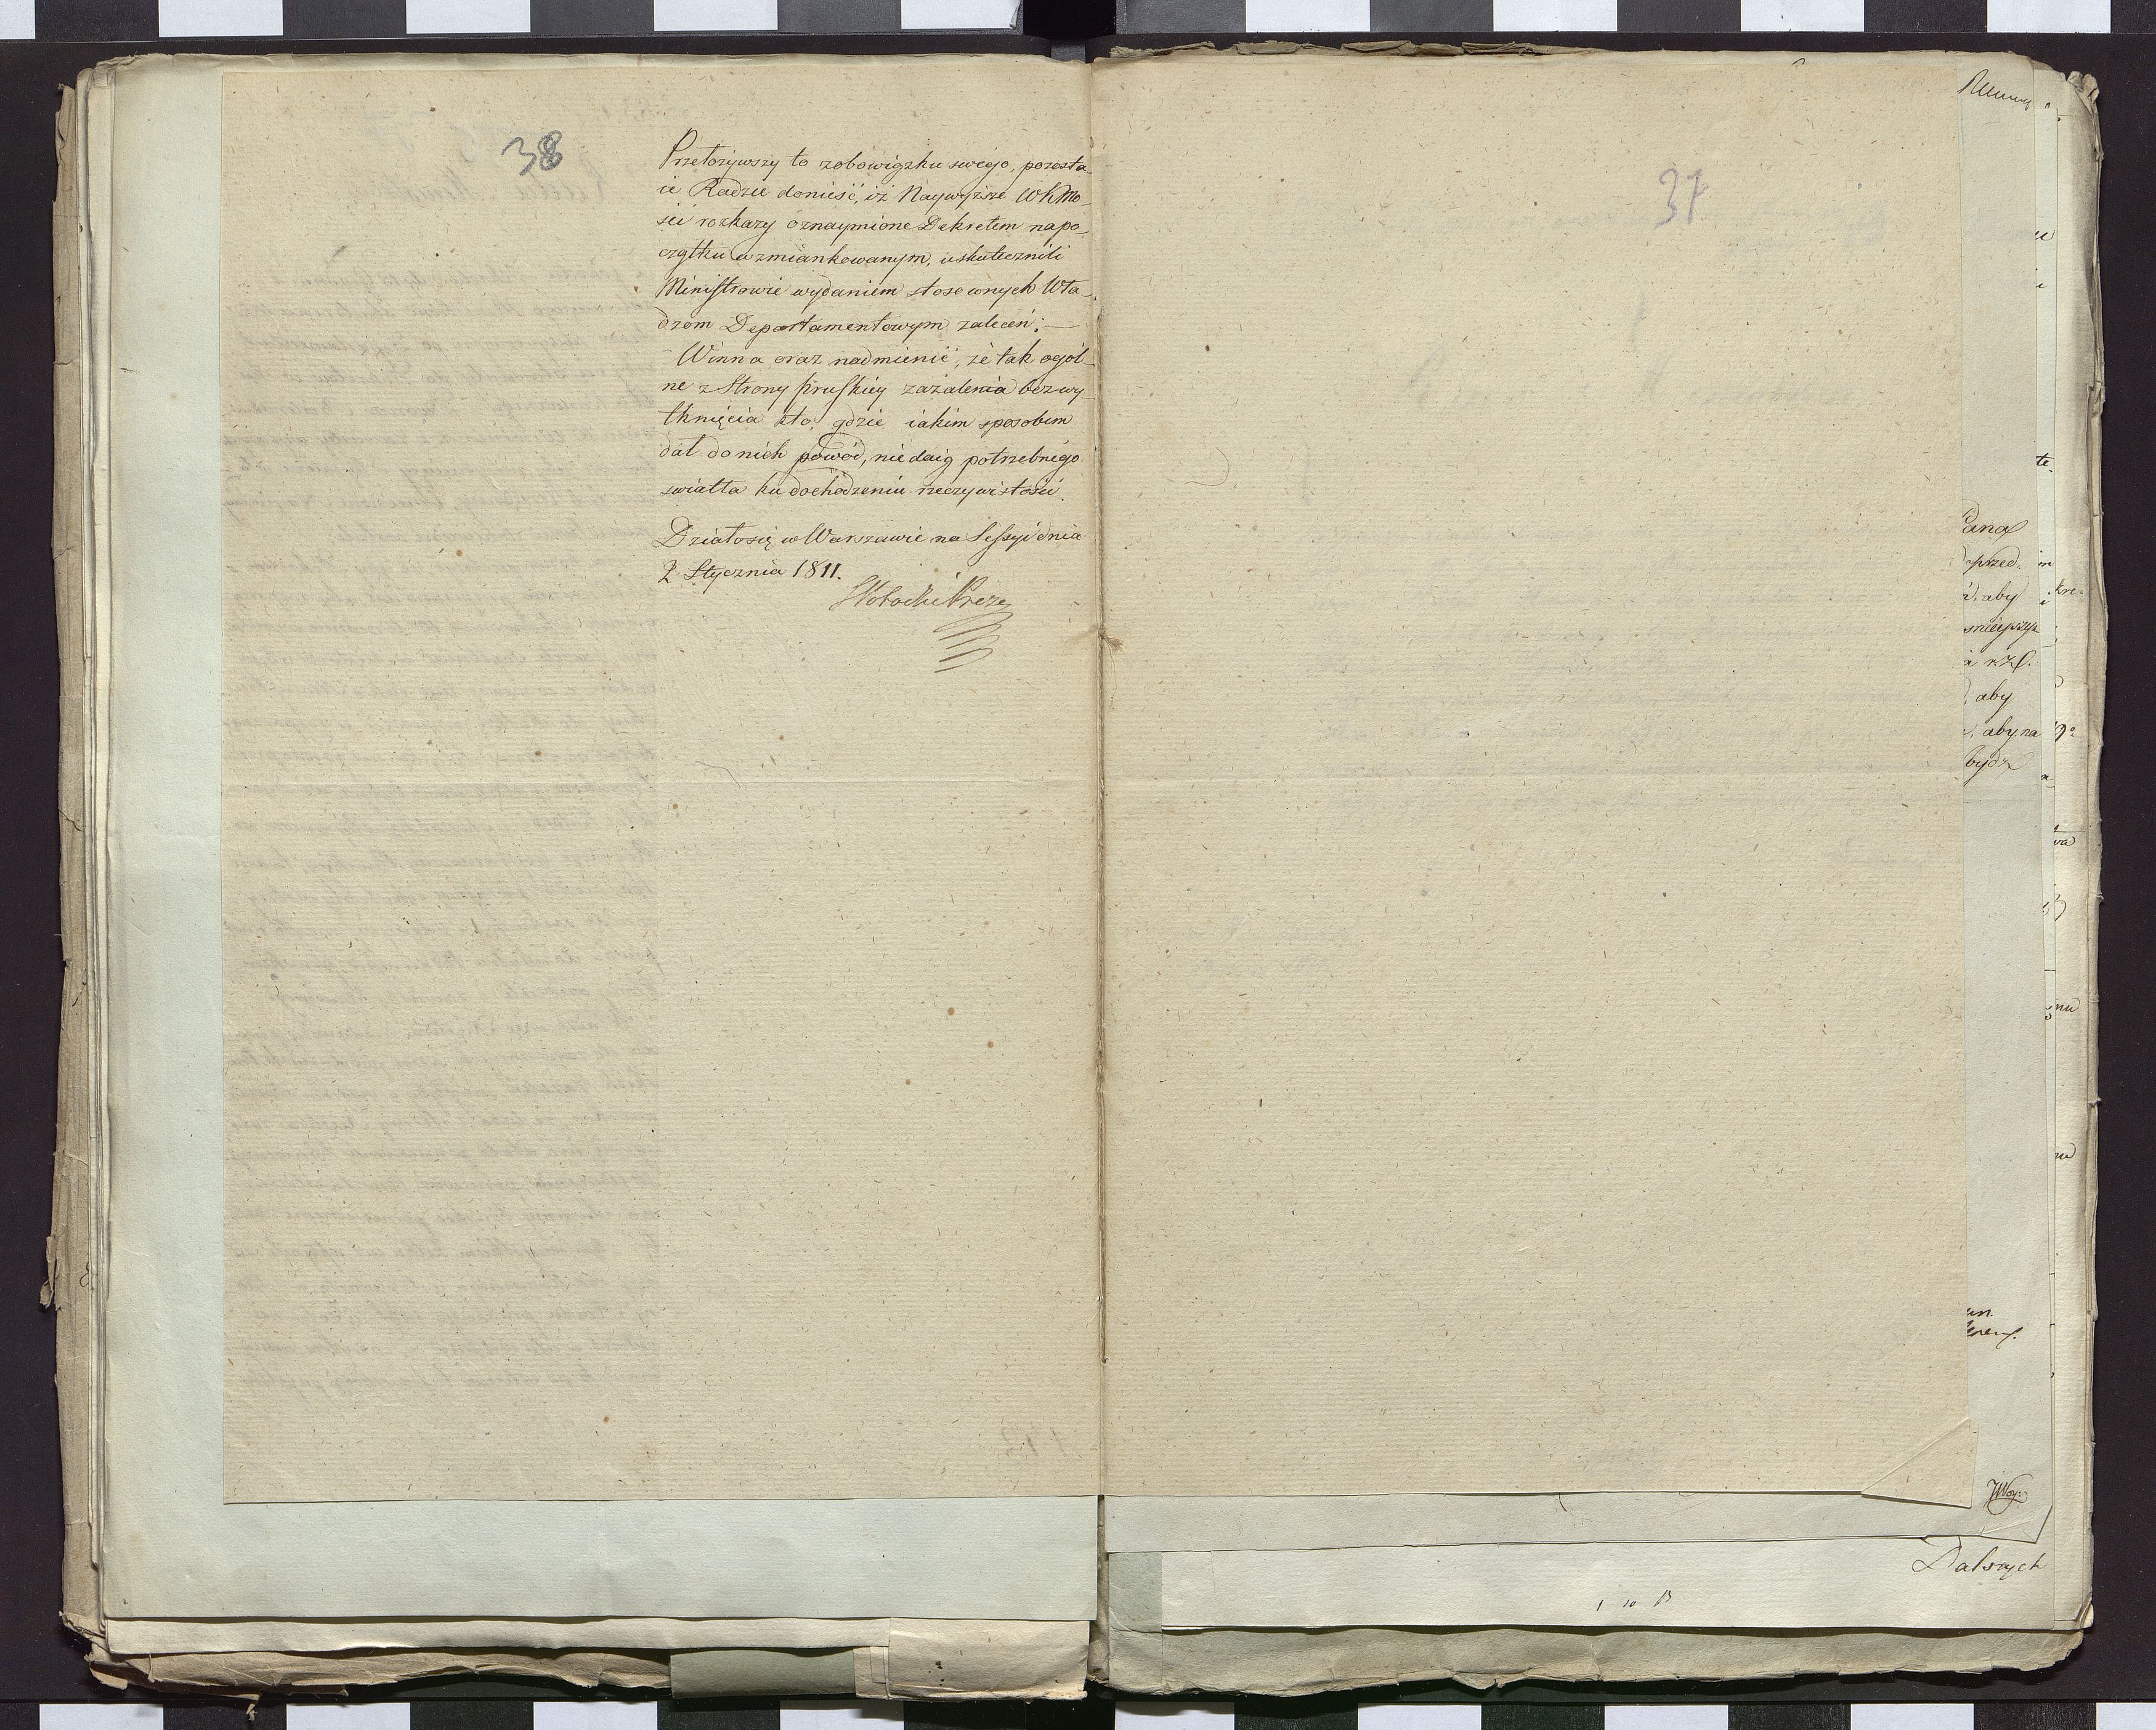 38
Przełożywszy to z obowiązku swego, pozosta-
ie Radzie donieść, iż Naywyższe WKMo-
ści rozkazy oznaymione Dekretem na po-
czątku wzmiankowanym, uskutecznili
Ministrowie wydaniem stosownych Wła-
dzom Departamentowym zaleceń;
Winna oraz nadmienić, że tak ogól-
ne z Strony pruskiey zażalenia bez wy-
tknięcia kto, gdzie iakim sposobem
dał do nich powód, nie daią potrzebnego
światła ku dochodzeniu rzeczywistości.
Działo się w Warszawie na Sessyi dnia
2 Stycznia 1811.
37
Pana
przed-
aby
aby
aby na
bydź
Dalszych